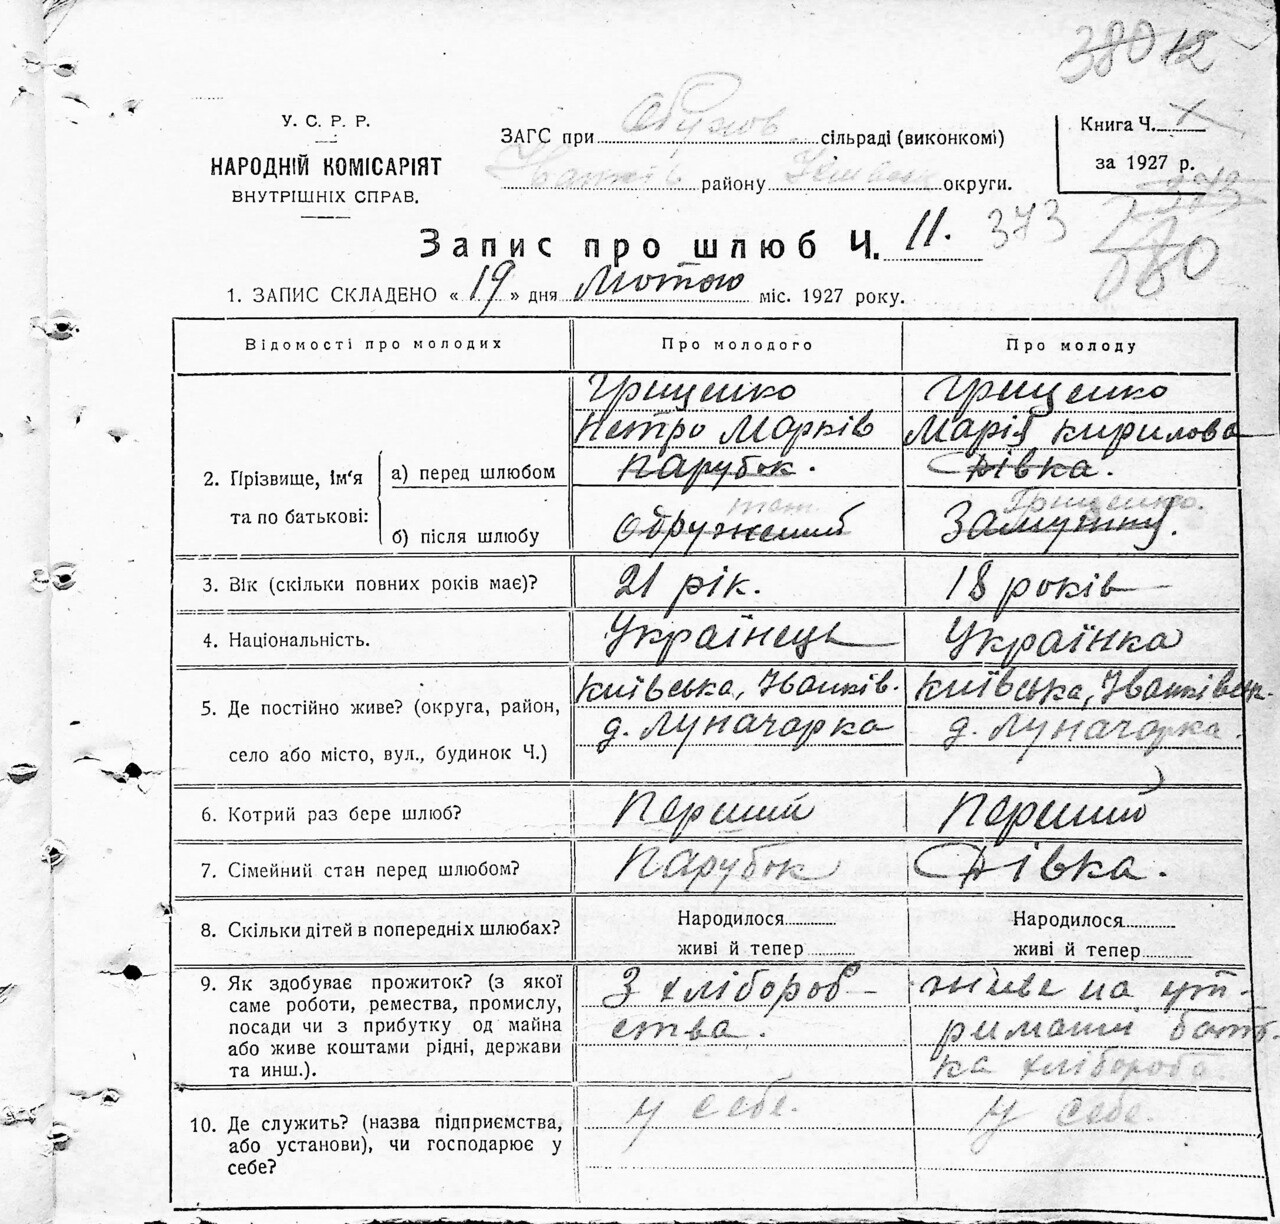 38012
У. С. Р. Р.
НАРОДНІЙ КОМІСАРІЯТ
ВНУТРІШНІХ СПРАВ.
ЗАГС при Обухов сільраді (виконкомі)
Іванків району округи.
Книга Ч. X
за 1927 р.
Запис про шлюб Ч. 11. 373
1. ЗАПИС СКЛАДЕНО « 19 » дня Лютою міс. 1927 року.
Відомості про молодих Про молодого Про молоду
2. Прізвище, ім'я та по батькові:
а) перед шлюбом
Грищенко
Петро Марків
Парубок.
Грищенко
Марія Кирилова
Дівка.
б) після шлюбу
Одружений
Грищенко.
Замужня.
3. Вік (скільки повних років має)? 21 рік. 18 років
4. Національність. Українець Українка
5. Де постійно живе? (округа, район,
село або місто, вул., будинок Ч.)
Київська, Іванків.
д. Луначарка
Київська, Іванківськ.
д. Луначарка.
6. Котрий раз бере шлюб? Перший Перший
7. Сімейний стан перед шлюбом? Парубок Дівка.
8. Скільки дітей в попередніх шлюбах?
Народилося
живі й тепер
Народилося
живі й тепер
9. Як здобуває прожиток? (з якої
саме роботи, ремества, промислу,
посади чи з прибутку од майна
або живе коштами рідні, держави
та инш.).
З хлібороб-
ства.
живе на ут-
риманні бать-
ка хлібороба
10. Де служить? (назва підприємства,
або установи), чи господарює у
себе?
у себе.
у себе.